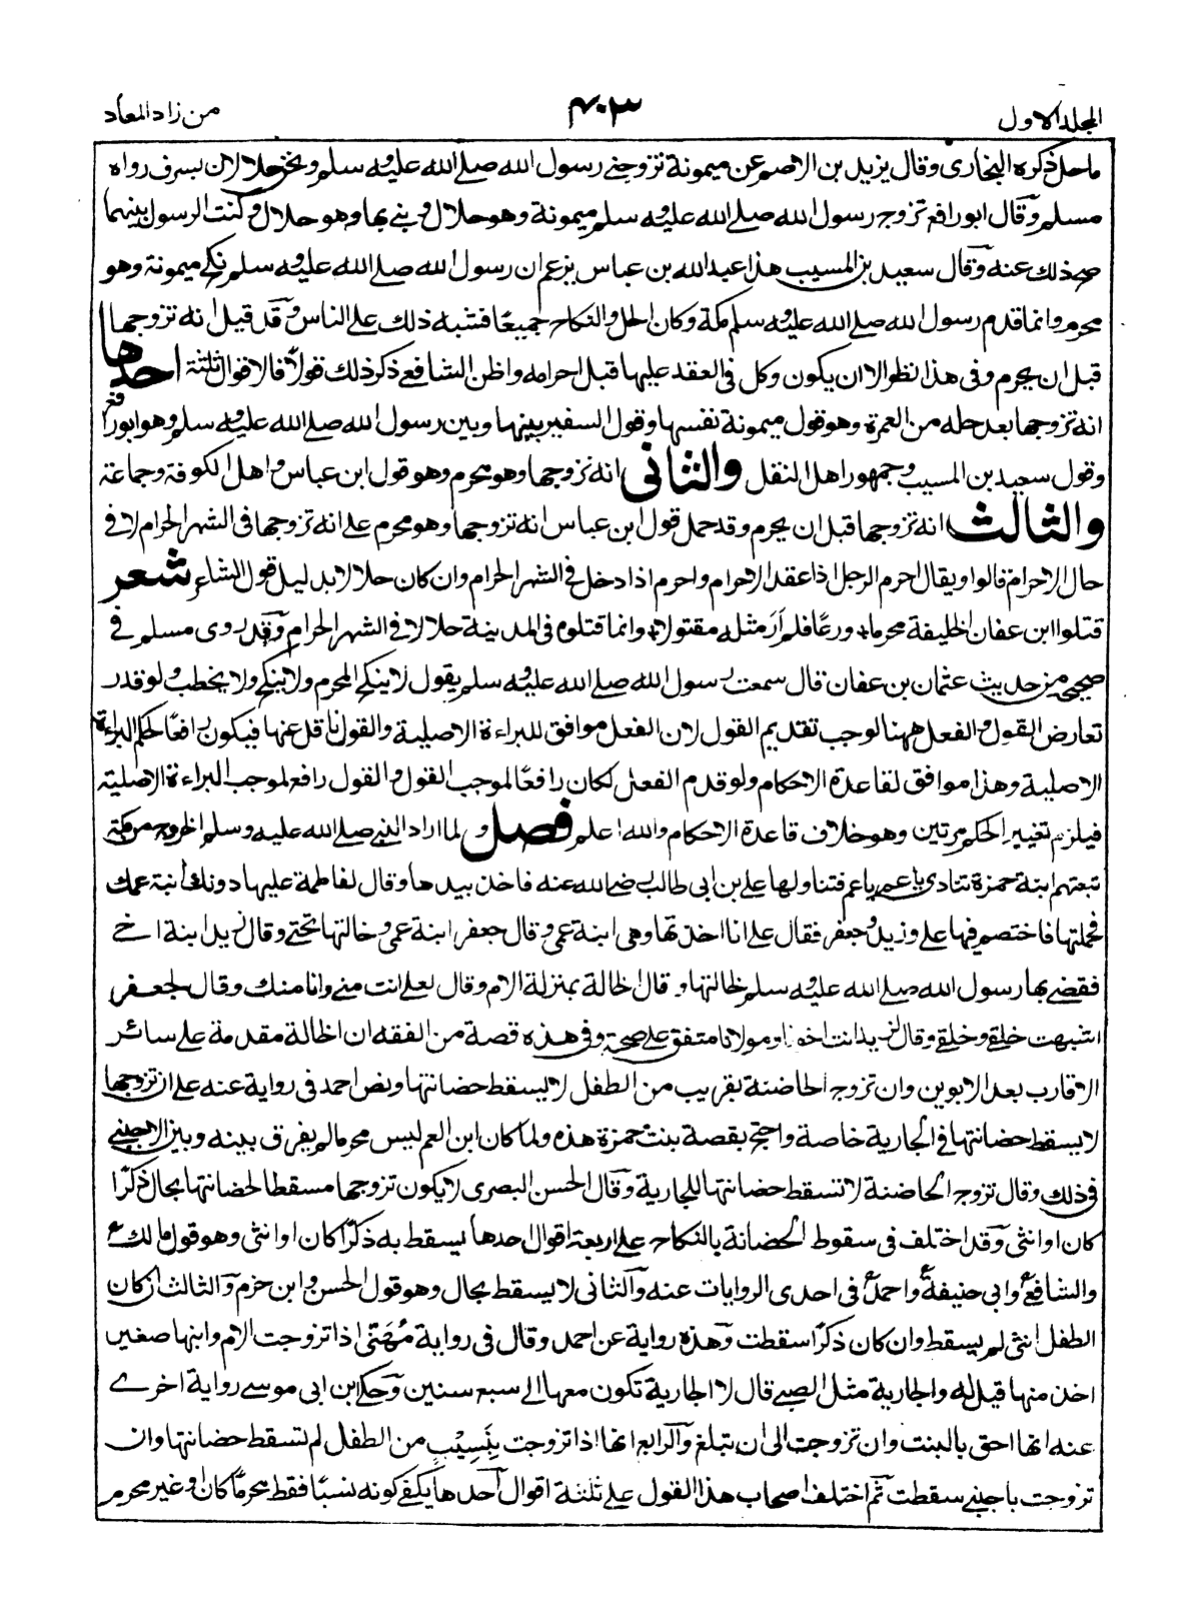 المجلد الاول
٤٠٣
من زاد المعاد
ما حل ذكره البخارى وقال يزيد بن الاصم عن ميمونة تزوجني رسول الله صلے الله عليه وسلم ونحن حلالان بسرف رواه
مسلم وقال ابو رافع تزوج رسول الله صلے الله عليه وسلم ميمونة وهو حلال وبنے بها وهو حلال وكنت الرسول بينهما
صح ذلك عنه وقال سعيد بن المسيب هذا عبد الله بن عباس يزعم ان رسول الله صلے الله عليه وسلم نكح ميمونة وهو
محرم وانما قدم رسول الله صلے الله عليه وسلم مكة وكان الحل والنكاح جميعًا فشبه ذلك علے الناس وقد قيل انه تزوجها
قبل ان يحرم وفى هذا نظر الا ان يكون وكل فى العقد عليها قبل احرامه واظن الشافعے ذكر ذلك قولًا فالاقوال ثلثة احدها
انه تزوجها بعد حله من العمرة وهو قول ميمونة نفسها وقول السفير بينها وبين رسول الله صلے الله عليه وسلم وهو ابو رافع
وقول سعيد بن المسيب وجمهور اهل النقل والثانى انه تزوجها وهو محرم وهو قول ابن عباس واهل الكوفة وجماعة
والثالث انه تزوجها قبل ان يحرم وقد حمل قول ابن عباس انه تزوجها وهو محرم علے انه تزوجها فى الشهر الحرام لا فى
حال الاحرام قالوا ويقال احرم الرجل اذا عقد الاحرام واحرم اذا دخل فى الشهر الحرام وان كان حلالا بدليل قول الشاعر شعر
قتلوا ابن عفان الخليفة محرما ورعًا فلم اَرَ مثله مقتولا وانما قتلوه فى المدينة حلالا فى الشهر الحرام وقد روى مسلم فے
صحيحه من حديث عثمان بن عفان قال سمعت رسول الله صلے الله عليه وسلم يقول لا ينكح المحرم ولا ينكح ولا يخطب ولو قدر
تعارض القول والفعل ههنا لوجب تقديم القول لان الفعل موافق للبراءة الاصلية والقول ناقل عنها فيكون رافعًا لحكم البراءة
الاصلية وهذا موافق لقاعدة الاحكام ولو قدم الفعل لكان رافعًا لموجب القول والقول رافع لموجب البراءة الاصلية
فيلزم تغيير الحكم مرتين وهو خلاف قاعدة الاحكام والله اعلم فصل ولما اراد النبے صلے الله عليه وسلم الخروج من مكة
تبعتهم ابنة حمزة تنادى يا عم يا عم فتناولها علے بن ابى طالب رضے الله عنه فاخذ بيدها وقال لفاطمة عليها دونك ابنة عمك
فحملتها فاختصم فيها علے وزيد وجعفر فقال علے انا اخذتها وهى ابنة عمى وقال جعفر ابنة عمى وخالتها تحتے وقال زيد ابنة اخے
فقضے بها رسول الله صلے الله عليه وسلم لخالتها وقال الخالة بمنزلة الام وقال لعلے انت منے وانا منك وقال لجعفر
اشبهت خلقے وخلقے وقال لزيد انت اخونا ومولانا متفق علے صحته وفى هذه قصة من الفقه ان الخالة مقدمة علے سائر
الاقارب بعد الابوين وان تزوج الحاضنة بقريب من الطفل لا يسقط حضانتها ونص احمد فى رواية عنه علے ان تزوجها
لا يسقط حضانتها فى الجارية خاصة واحتج بقصة بنت حمزة هذه ولما كان ابن العم ليس محرما لم يفرق بينه وبين الاجنبے
فى ذلك وقال تزوج الحاضنة لا تسقط حضانتها للجارية وقال الحسن البصرى لا يكون تزوجها مسقطا لحضانتها بحال ذكرًا
كان او انثى وقد اختلف فى سقوط الحضانة بالنكاح علے اربعة اقوال احدها يسقط به ذكرًا كان او انثى وهو قول مالك
والشافعے وابى حنيفة واحمد فى احدى الروايات عنه والثانى لا يسقط بحال وهو قول الحسن وابن حزم والثالث ان كان
الطفل انثى لم يسقط وان كان ذكرًا سقطت وهذه رواية عن احمد وقال فى رواية مُهَنّى اذا تزوجت الام وابنها صغير
اخذ منها قيل له والجارية مثل الصبے قال لا الجارية تكون معها الے سبع سنين وحكے ابن ابى موسے رواية اخرے
عنه انها احق بالبنت وان تزوجت الى ان تبلغ والرابع انها اذا تزوجت بِنَسِيْبٍ من الطفل لم تسقط حضانتها وان
تزوجت باجنبے سقطت ثم اختلف اصحاب هذا القول علے ثلثة اقوال احدها يكفے كونه نسبًا فقط محرمًا كان او غير محرم